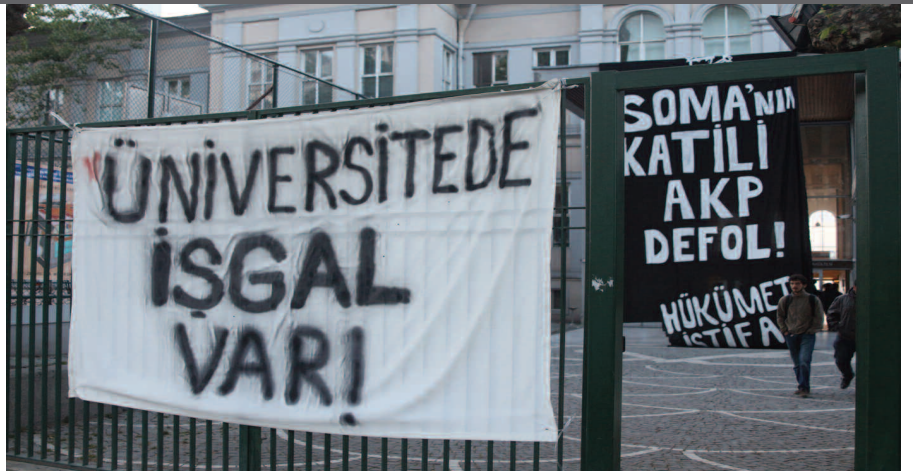 ÜNİVERSİTEDE
İŞGAL
VAR!
SOMA'NIN
KATİLİ
AKP
DEFOL!
HÜKÜMET
İSTİFA